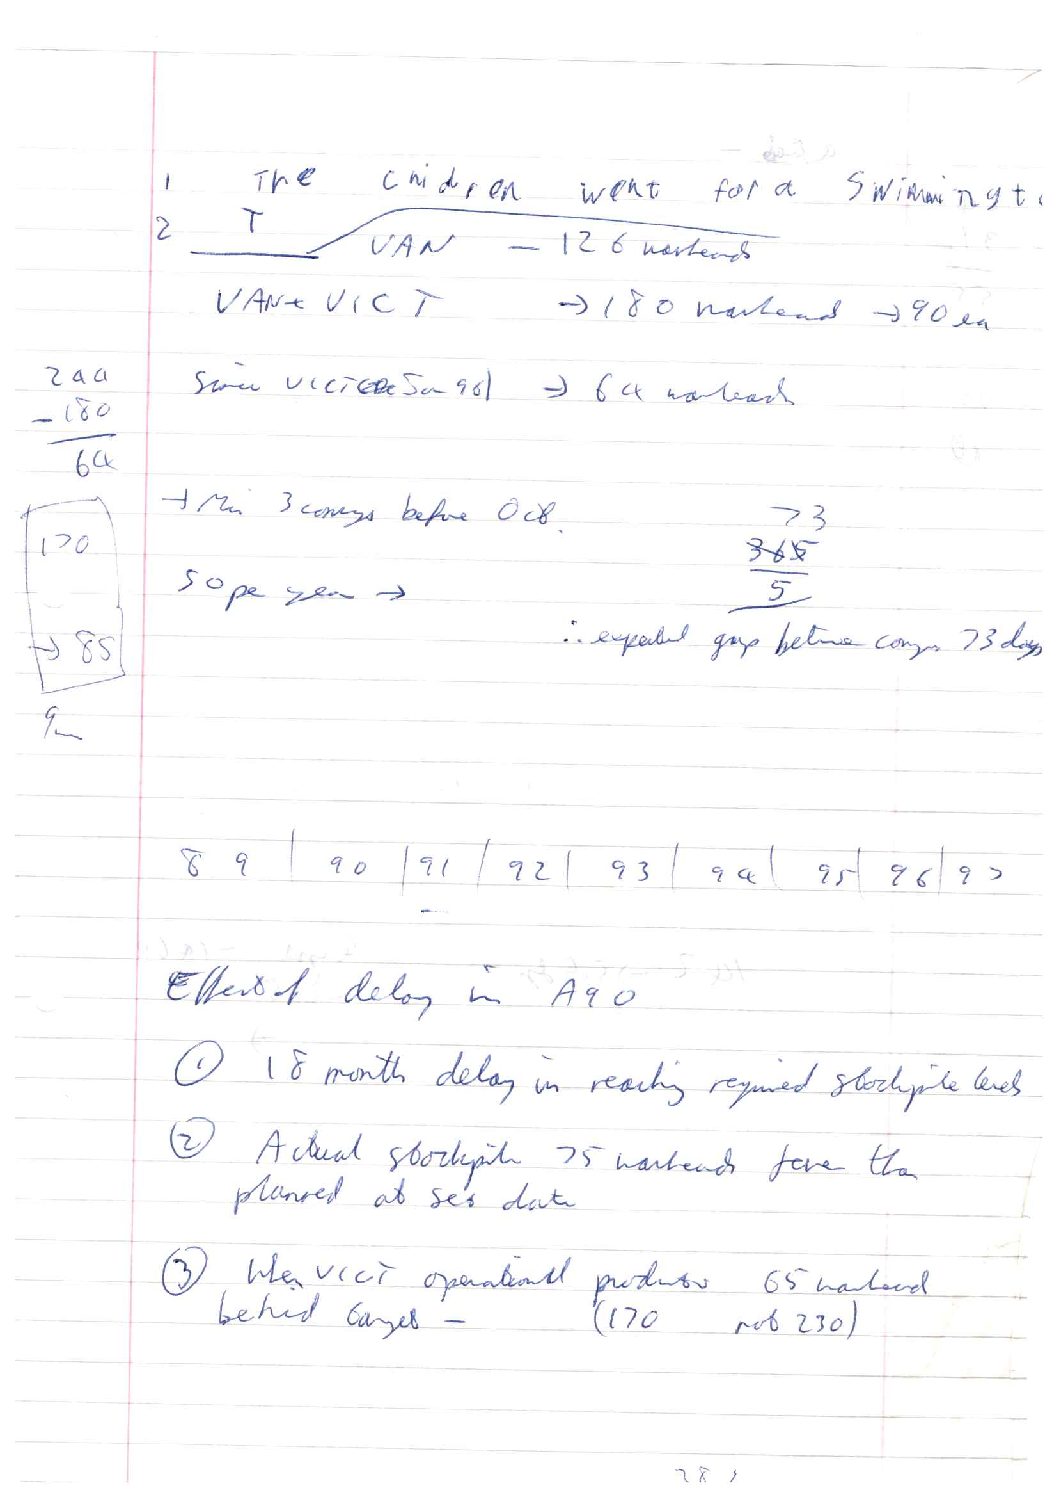 1 The children went for a Swimming t
2 T
VAN – 126 warheads
VAN + VICT → 180 warhead → 90 ea
244
- 180
64
Since VICT Jan 96 → 64 warheads
→ Min 3 convoys before Oct.
73
365
5
170
→ 85
50 per year →
∴ expected gap between convoys 73 days
9m
89 | 90 | 91 | 92 | 93 | 94 | 95 | 96 | 97
Effect of delay in A90
① 18 month delay in reaching required stockpile levels
② Actual stockpile 75 warheads fewer than
planned at set date
③ When VICT operational production 65 warhead
behind target – (170 not 230)